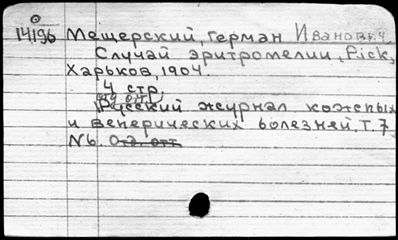 14196 Мещерский, Герман Иванович
Случай эритромелии, Pick,
Харьков, 1904.
4 стр.
отд. отт.
Русский журнал кожных
и венерических болезней, Т. 7
№6. Отд. отт.